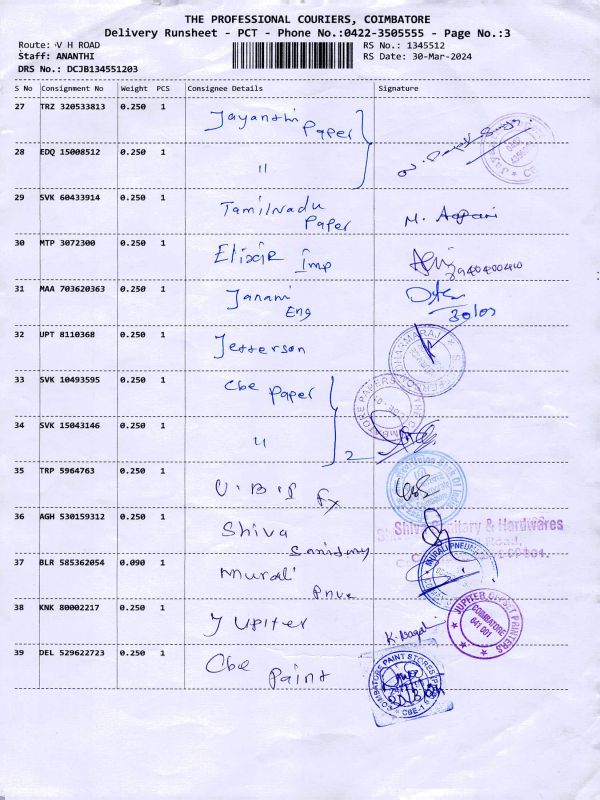 THE PROFESSIONAL COURIERS, COIMBATORE
Delivery Runsheet - PCT - Phone No.:0422-3505555 - Page No.:3
Route: V H ROAD
RS No.: 1345512
Staff: ANANTHI
RS Date: 30-Mar-2024
DRS No.: DCJB134551203
S No Consignment No Weight PCS Consignee Details Signature
27 TRZ 320533813 0.250 1 Jayanthi Paper
28 EDQ 15008512 0.250 1 "
29 SVK 60433914 0.250 1 Tamilnadu Paper M.
30 MTP 3072300 0.250 1 Elixir Imp
31 MAA 703620363 0.250 1 Janani Eng
32 UPT 8110368 0.250 1 Jefferson
DHARMARAJ
33 SVK 10493595 0.250 1 Cbe Paper
34 SVK 15043146 0.250 1 "
2
35 TRP 5964763 0.250 1 U.B.I Ex
36 AGH 530159312 0.250 1 Shiva Sanitary
Shiva Sanitary & Hardwares
37 BLR 585362054 0.090 1 Murali Pnue
MURALI PNEUM
38 KNK 80002217 0.250 1 Jupiter
JUPITER OFFSET PRINTERS
COIMBATORE
641 001
39 DEL 529622723 0.250 1 Cbe Paint
COIMBATORE PAINT STORES
CBE-1